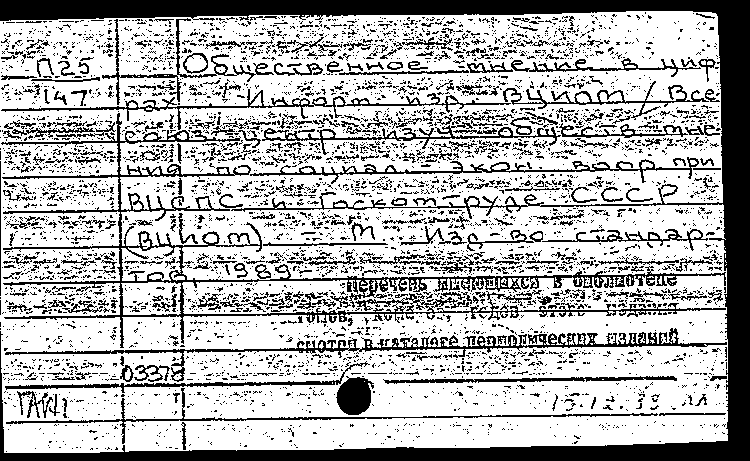 П25 Общественное мнение в циф-
147 рах : Информ. изд. ВЦИОМ / Все-
союз. центр изуч. обществ. мне-
ния по социал.-экон. вопр. при
ВЦСПС и Госкомтруде СССР
(ВЦИОМ). – М. Изд-во стандар-
тов, 1989 –
Перечень имеющихся в библиотеке
томов, годов этого издания
смотри в каталоге периодических изданий
03378
15.12.89